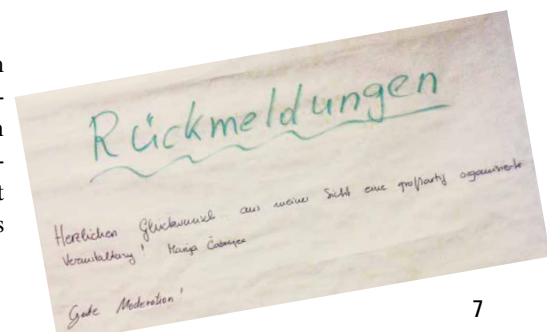 Rückmeldungen
Herzlichen Glückwunsch aus meiner Sicht eine großartig organisierte
Veranstaltung!
Gute Moderation!
7